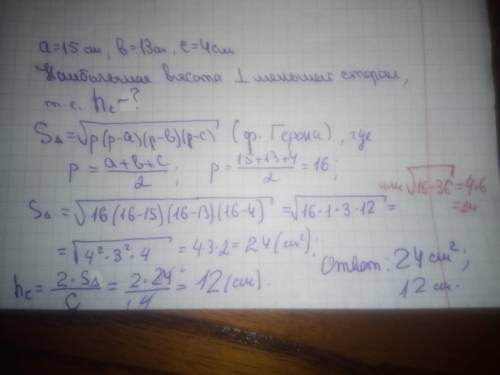 a=15 см, в=13 см, c=4 см.
Наибольшая высота ⊥ меньшей стороне,
т.е. hc - ?
S△ = √p(p-a)(p-в)(p-c) (ф. Герона), где
p = a+в+c/2; p = 15+13+4/2 = 16;
или √16·36 = 4·6
= 24
S△ = √16(16-15)(16-13)(16-4) = √16·1·3·12 =
= √4²·3²·4 = 4·3·2 = 24 (см²);
hc = 2·S△/c = 2·24/4 = 12 (см).
Ответ: 24 см²;
12 см.